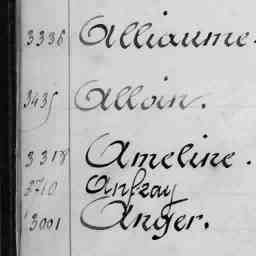 3336 Alliaume.
3435 Alloin.
3318 Ameline.
3710 Anfray
3001 Anger.